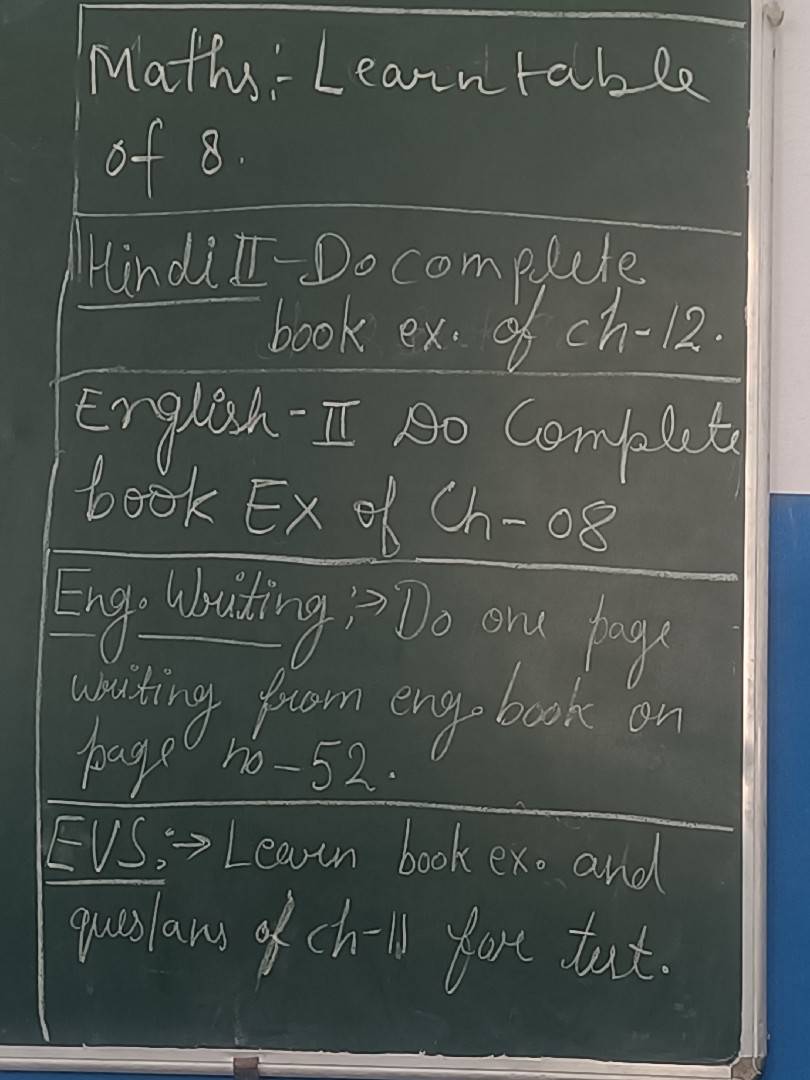 Maths:- Learn table
of 8.
Hindi II - Do complete
book ex. of ch-12.
English - II Do Complete
book Ex of Ch- 08
Eng. Writing :→ Do one page
writing from eng. book on
page no - 52.
EVS :→ Learn book ex. and
ques/ans of ch-11 for test.